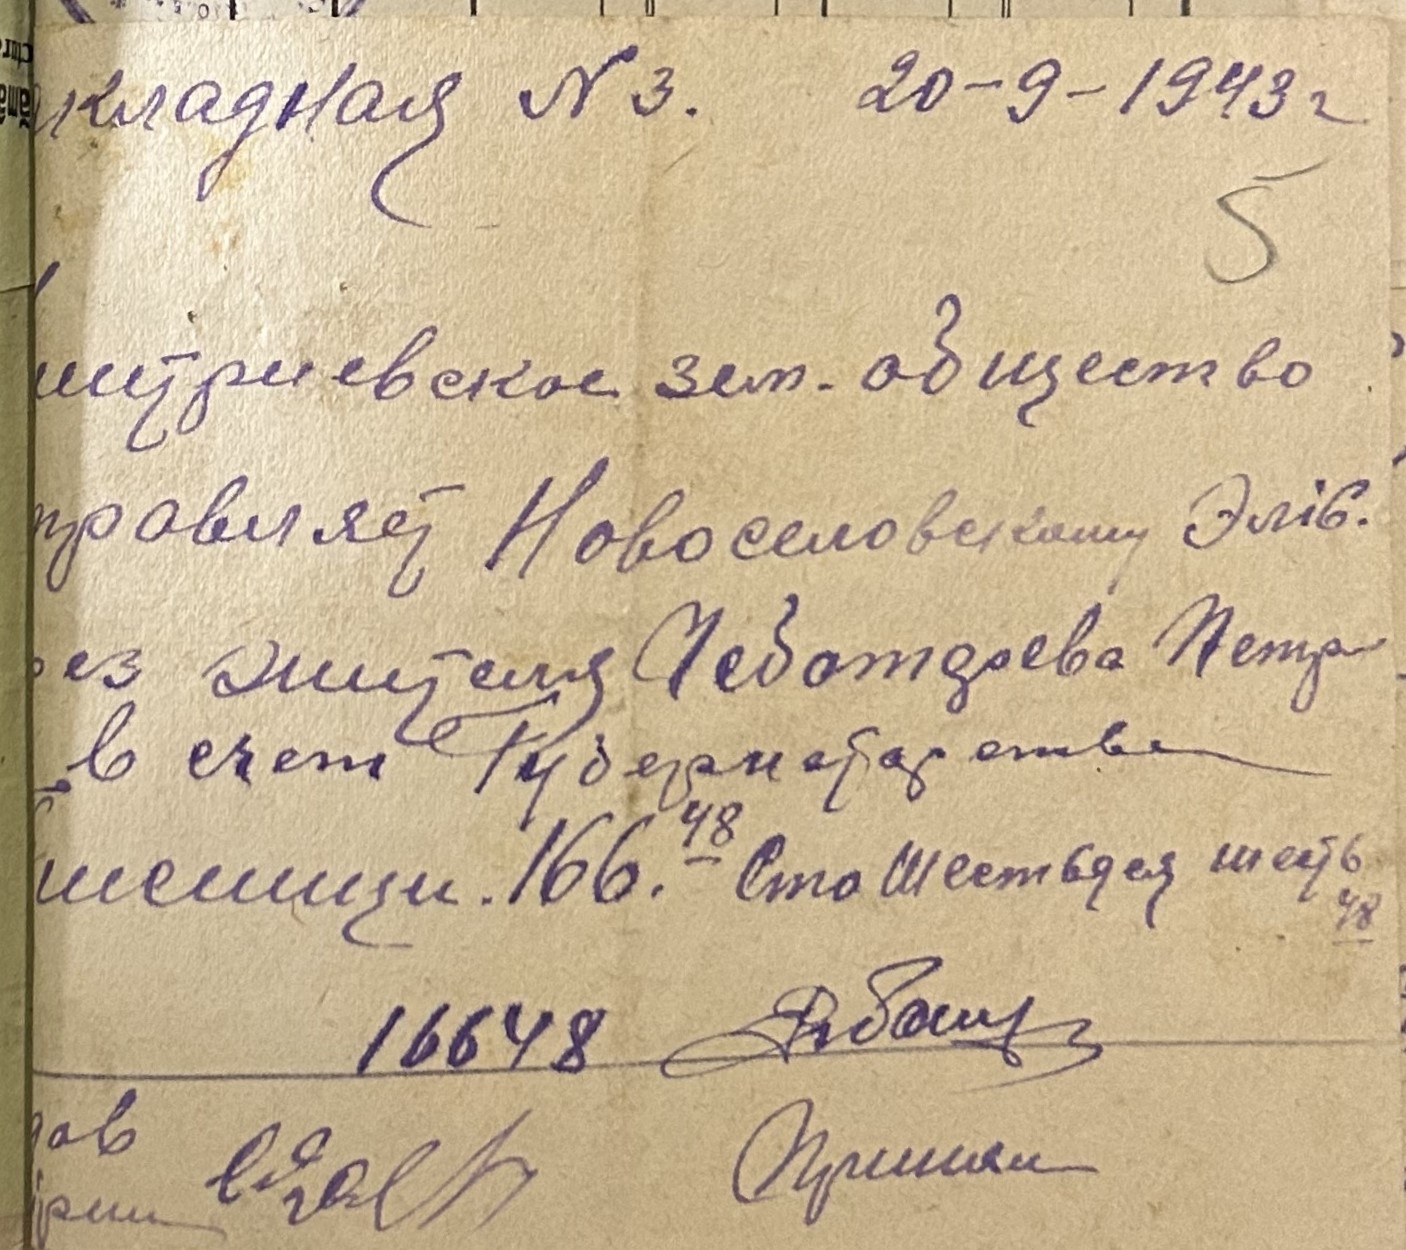 кладная N 3. 20-9-1943 г
5
митриевское зем. общество
правляет Новоселовскому Элів.
рез жителя Чеботарева Петр
в счет Губернаторства
шеницы. 166.48 Сто Шестьдеся шесть 48
16648
дов Принял